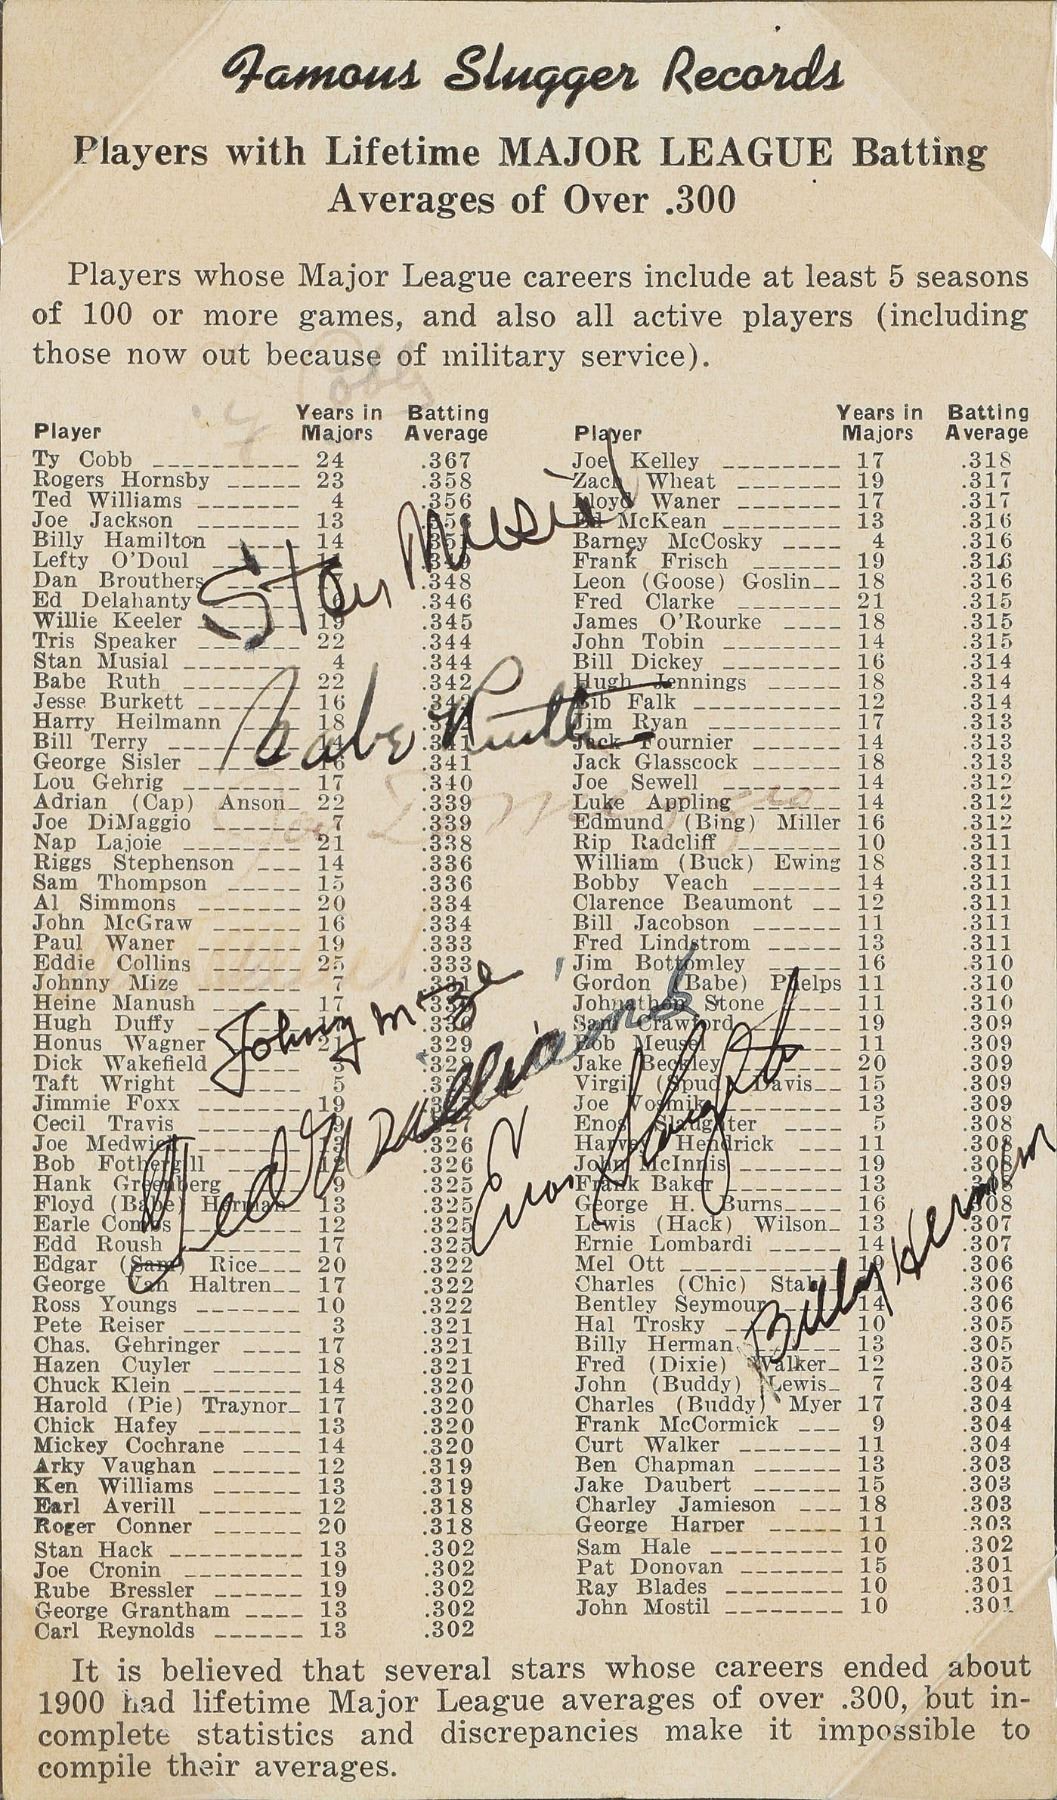 Famous Slugger Records
Players with Lifetime MAJOR LEAGUE Batting
Averages of Over .300
Players whose Major League careers include at least 5 seasons
of 100 or more games, and also all active players (including
those now out because of military service).
Player Years in Majors Batting Average
Ty Cobb 24 .367
Rogers Hornsby 23 .358
Ted Williams 4 .356
Joe Jackson 13
Billy Hamilton 14
Lefty O'Doul
Dan Brouthers .348
Ed Delahanty .346
Willie Keeler 19 .345
Tris Speaker 22 .344
Stan Musial 4 .344
Babe Ruth 22 .342
Jesse Burkett 16
Harry Heilmann 18
Bill Terry
George Sisler .341
Lou Gehrig 17 .340
Adrian (Cap) Anson 22 .339
Joe DiMaggio 7 .339
Nap Lajoie 21 .338
Riggs Stephenson 14 .336
Sam Thompson 15 .336
Al Simmons 20 .334
John McGraw 16 .334
Paul Waner 19 .333
Eddie Collins 25 .333
Johnny Mize 7
Heine Manush 17
Hugh Duffy
Honus Wagner 21 .329
Dick Wakefield
Taft Wright 5
Jimmie Foxx 19
Cecil Travis
Joe Medwick .326
Bob Fothergill 12 .326
Hank Greenberg 9 .325
Floyd (Babe) Herman 13 .325
Earle Combs 12 .325
Edd Roush 17 .325
Edgar (Sam) Rice 20 .322
George Van Haltren 17 .322
Ross Youngs 10 .322
Pete Reiser 3 .321
Chas. Gehringer 17 .321
Hazen Cuyler 18 .321
Chuck Klein 14 .320
Harold (Pie) Traynor 17 .320
Chick Hafey 13 .320
Mickey Cochrane 14 .320
Arky Vaughan 12 .319
Ken Williams 13 .319
Earl Averill 12 .318
Roger Conner 20 .318
Stan Hack 13 .302
Joe Cronin 19 .302
Rube Bressler 19 .302
George Grantham 13 .302
Carl Reynolds 13 .302
Player Years in Majors Batting Average
Joe Kelley 17 .318
Zach Wheat 19 .317
Lloyd Waner 17 .317
Ed McKean 13 .316
Barney McCosky 4 .316
Frank Frisch 19 .316
Leon (Goose) Goslin 18 .316
Fred Clarke 21 .315
James O'Rourke 18 .315
John Tobin 14 .315
Bill Dickey 16 .314
Hugh Jennings 18 .314
Bib Falk 12 .314
Jim Ryan 17 .313
Jack Fournier 14 .313
Jack Glasscock 18 .313
Joe Sewell 14 .312
Luke Appling 14 .312
Edmund (Bing) Miller 16 .312
Rip Radcliff 10 .311
William (Buck) Ewing 18 .311
Bobby Veach 14 .311
Clarence Beaumont 12 .311
Bill Jacobson 11 .311
Fred Lindstrom 13 .311
Jim Bottomley 16 .310
Gordon (Babe) Phelps 11 .310
Johnathon Stone 11 .310
Sam Crawford 19 .309
Bob Meusel 11 .309
Jake Beckley 20 .309
Virgil (Spud) Davis 15 .309
Joe Vosmik 13 .309
Enos Slaughter 5 .308
Harvey Hendrick 11 .308
John McInnis 19 .308
Frank Baker 13 .308
George H. Burns 16 .308
Lewis (Hack) Wilson 13 .307
Ernie Lombardi 14 .307
Mel Ott 19 .306
Charles (Chic) Stahl .306
Bentley Seymour 14 .306
Hal Trosky 10 .305
Billy Herman 13 .305
Fred (Dixie) Walker 12 .305
John (Buddy) Lewis 7 .304
Charles (Buddy) Myer 17 .304
Frank McCormick 9 .304
Curt Walker 11 .304
Ben Chapman 13 .303
Jake Daubert 15 .303
Charley Jamieson 18 .303
George Harper 11 .303
Sam Hale 10 .302
Pat Donovan 15 .301
Ray Blades 10 .301
John Mostil 10 .301
Stan Musial
Babe Ruth
Johny Mize
Ted Williams
Enos Slaughter
Billy Herman
It is believed that several stars whose careers ended about
1900 had lifetime Major League averages of over .300, but in-
complete statistics and discrepancies make it impossible to
compile their averages.